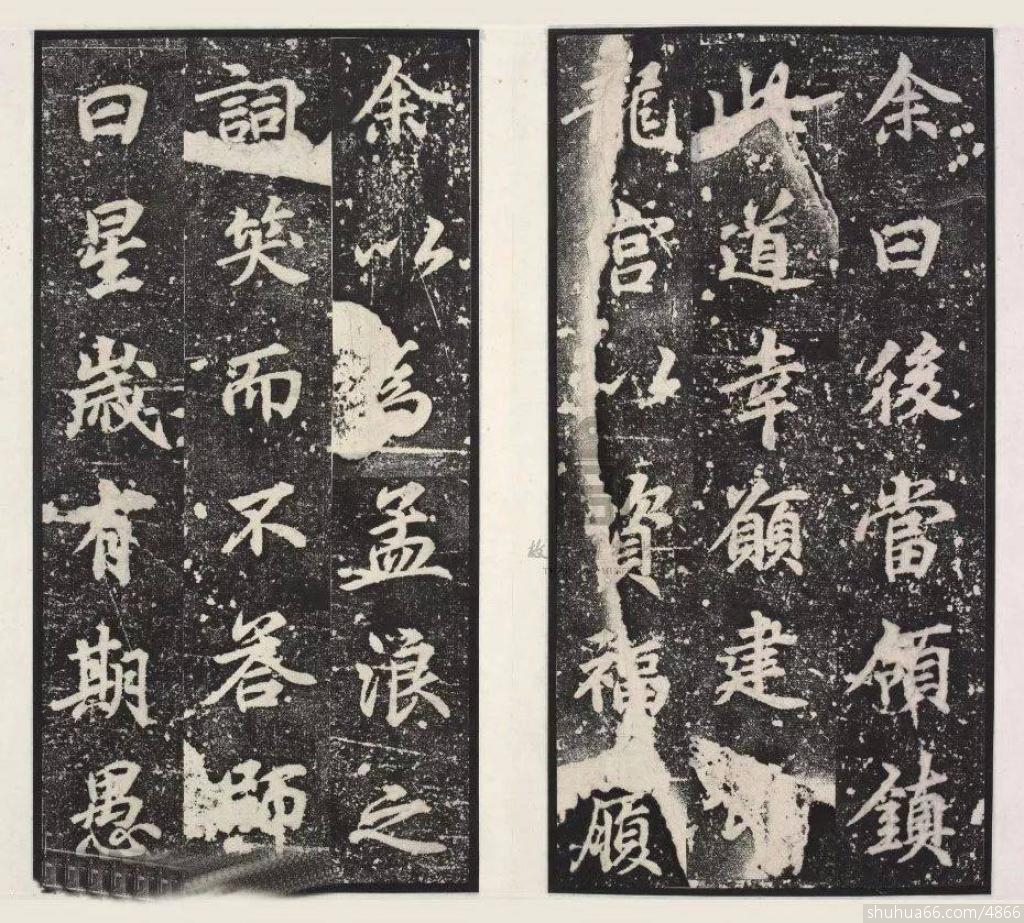 余曰後當領鎮
此道幸願建
龍宮以資福顧
余以為孟浪之
詞笑而不答師
曰星歲有期愚
shuhua66.com/4866